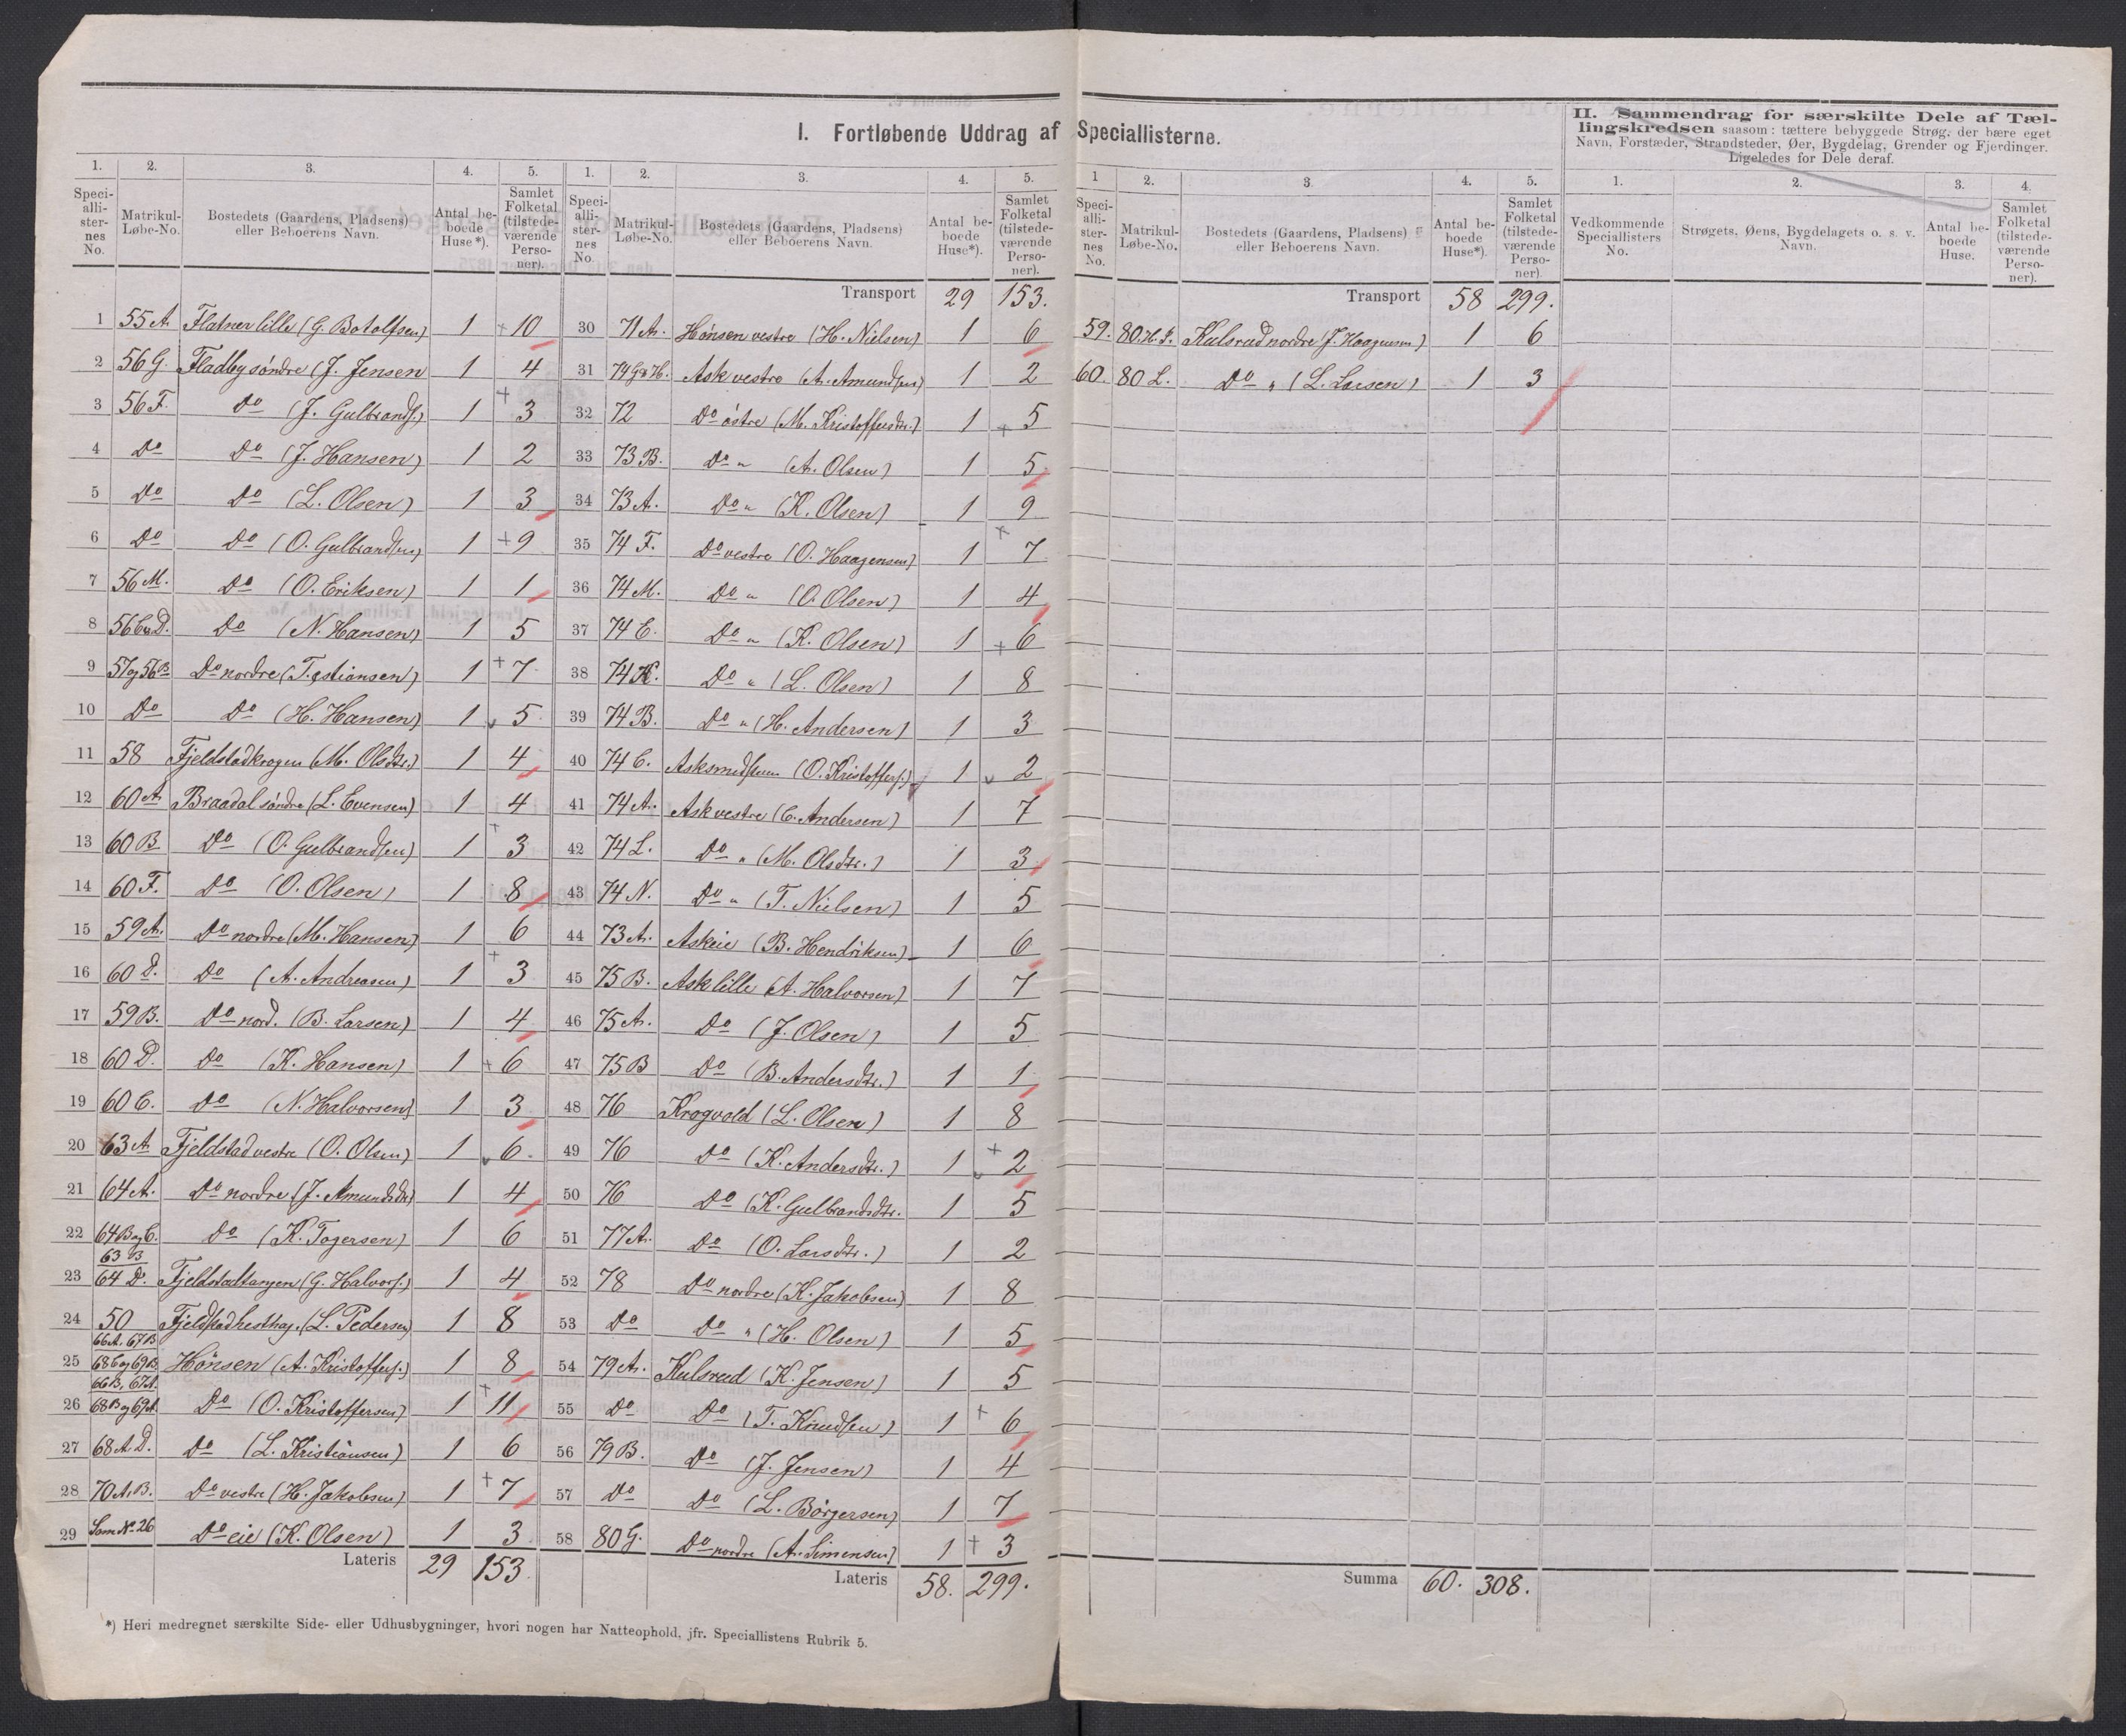 I. Fortløbende Uddrag af Speciallisterne.
II. Sammendrag for særskilte Dele af Tællingskredsen saasom: tættere bebyggede Strøg, der bære eget
Navn, Forstæder, Strandsteder, Øer, Bygdelag, Grender og Fjerdinger.
Ligeledes for Dele deraf.
1. 2. 3. 4. 5.
Speciallisternes No. Matrikul-Løbe-No. Bostedets (Gaardens, Pladsens) eller Beboerens Navn. Antal beboede Huse*). Samlet Folketal (tilstedeværende Personer).
1 55 A. Flatner lille (G. Botolfsen) 1 + 10
2 56 G. Fladby søndre (J. Jensen 1 4
3 56 F. Do (J. Gulbrands.) 1 + 3
4 Do Do (J. Hansen) 1 2
5 Do Do (L. Olsen) 1 3
6 Do Do (O. Gulbrandsen) 1 + 9
7 56 M. Do (O. Eriksen) 1 1
8 56 C og D. Do (N. Hansen) 1 5
9 57 og 56 B Do nordre 1 + 7
10 Do Do (H. Hansen) 1 5
11 58 Fjeldstadkrogen (M. Olsdtr.) 1 4
12 60 A Braadal søndre (L. Evensen) 1 4
13 60 B Do (O. Gulbrandsen) 1 + 3
14 60 F. Do (O. Olsen) 1 8
15 59 A. Do nordre (M. Hansen) 1 6
16 60 D. Do (A. Andreasen) 1 + 3
17 59 B. Do nord. (B. Larsen) 1 4
18 60 D. Do (K. Hansen) 1 + 6
19 60 C. Do (N. Halvorsen) 1 3
20 63 A Fjeldstad vestre (O. Olsen) 1 6
21 64 A. Do nordre (J. Amundsdtr) 1 4
22 64 B og C. Do (K. Togersen) 1 6
63 B
23 64 D. Fjeldstadtangen (G. Halvors.) 1 4
24 50 Fjeldstadhesthag. (L. Pedersen) 1 8
66 A. 67 B
25 68 C og 69 B. Hønsen (A. Kristoffers.) 1 8
66 B, 67 A.
26 68 B og 69 A. Do (O. Kristoffersen) 1 + 11
27 68 A. D. Do (L. Kristiansen) 1 6
28 70 A. B. Do vestre (H. Jakobsen) 1 + 7
29 Som No. 26 Do eie (K. Olsen) 1 3
Lateris 29 153.
1. 2. 3. 4. 5.
Speciallisternes No. Matrikul-Løbe-No. Bostedets (Gaardens, Pladsens) eller Beboerens Navn. Antal beboede Huse*). Samlet Folketal (tilstedeværende Personer).
Transport 29 153.
30 71 A. Hønsen vestre (H. Nielsen) 1 6
31 74 G & H. Ask vestre (A. Amundsen) 1 2
32 72 Do østre (M. Kristoffersdtr.) 1 + 5
33 73 B. Do " (A. Olsen) 1 5
34 73 A. Do " (K. Olsen) 1 9
35 74 F. Do vestre (O. Haagensen) 1 + 7
36 74 M. Do " (O. Olsen) 1 4
37 74 E. Do " (K. Olsen) 1 + 6
38 74 K. Do " (L. Olsen) 1 8
39 74 B. Do " (H. Andersen) 1 3
40 74 C. (O. Kristoffers.) 1 2
41 74 A. Ask vestre (C. Andersen) 1 7
42 74 L. Do " (M. Olsdtr.) 1 3
43 74 N. Do " (T. Nielsen) 1 5
44 73 A. Askeie (B. Hendriksen) 1 6
45 75 B. Ask lille (A. Halvorsen) 1 7
46 75 A. Do (J. Olsen) 1 5
47 75 B Do (B. Andersdtr.) 1 1
48 76 Krogvold (L. Olsen) 1 8
49 76 Do (K. Andersdtr.) 1 + 2
50 76 Do (K. Gulbrandsdtr. 1 5
51 77 A. Do (O. Larsdtr.) 1 2
52 78 Do nordre (K. Jakobsen) 1 8
53 Do Do " (H. Olsen) 1 5
54 79 A. Kulsrud (K. Jensen) 1 5
55 Do Do (T. Knudsen) 1 + 6
56 79 B. Do (J. Jensen) 1 4
57 Do Do (L. Børgersen) 1 7
58 80 G. Do nordre (A. Simensen) 1 + 3
Lateris 58. 299.
1 2. 3. 4. 5.
Speciallisternes No. Matrikul-Løbe-No. Bostedets (Gaardens, Pladsens) eller Beboerens Navn. Antal beboede Huse*). Samlet Folketal (tilstedeværende Personer).
Transport 58 299.
59. 80. Kulsrud nordre (J. Haagensen) 1 6
60. 80 L. Do " (L. Larsen) 1 3
Summa 60. 308.
1. 2. 3. 4.
Vedkommende Speciallisters No. Strøgets, Øens, Bygdelagets o. s. v. Navn. Antal beboede Huse. Samlet Folketal (tilstedeværende Personer).
*) Heri medregnet særskilte Side- eller Udhusbygninger, hvori nogen har Natteophold, jfr. Speciallistens Rubrik 5.